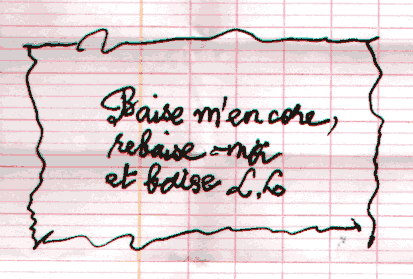 Baise m'encore,
rebaise-moi
et baise L.L